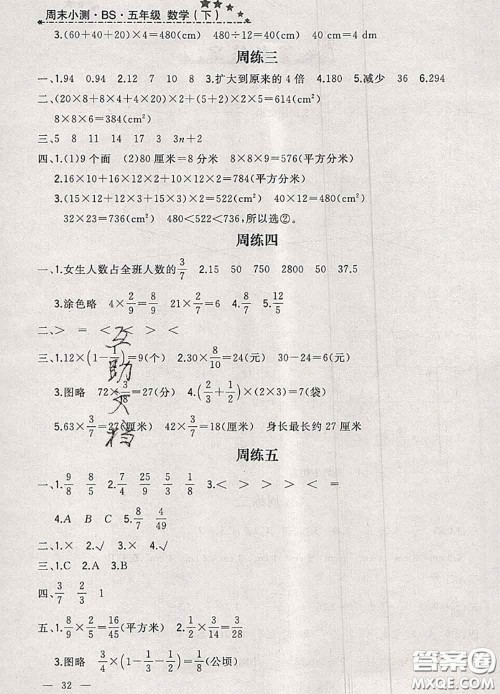 周末小测·BS·五年级 数学(下)
3.(60+40+20)×4=480(cm) 480÷12=40(cm) 40 cm=4 dm
周练三
一、1.94 0.94 2.12 5 3.扩大到原来的4倍 4.180 5.减少 36 6.294
二、(20×8+8×4+20×4)×2+(5+2)×5×2=614(cm²)
8×8×6=384(cm²)
三、5 8 11 14 17 3 3n+2
四、1.(1)9个面 (2)80厘米=8分米 8×8×9=576(平方分米)
2.16×10+16×12×2+10×12×2=784(平方分米)
3.①40×12=480(cm²) ②(15×9+15×7)×2+9×7=522(cm²) ③
32×23=736(cm²) 480<522<736,所以选②。
周练四
一、1.女生人数占全班人数的3/7 2.15 50 750 2800 50 37.5
3.涂色略 4×2/9=8/9 21×2/7=6 4.8/9 5.7/12
二、> = < < > >
三、1.12×(1-1/4)=9(个) 2.30×8/10=24(元) 30-24=6(元)
3.图略 72×3/8=27(分) 4.(2/3+1/2)×(2×3)=7(袋)
5.63×3/7=27(厘米) 42×3/7=18(厘米) 身长最长约27厘米
互助文档
周练五
一、1.9/8 8/5 2.7/4 25/9 5/3 1/2 3.< > > > < =
4.A B C 5.3/7
二、1.× 2.√ 3.× 4.√
三、1.C 2.A 3.B
四、3/7 2/3 1
五、1.8/9×2/5=16/45(平方米) 2.1/2×3/14=3/28
3.图略 3/4×(1-1/3-1/2)=1/8(公顷)
— 32 —
答案圈
MXQE.COM